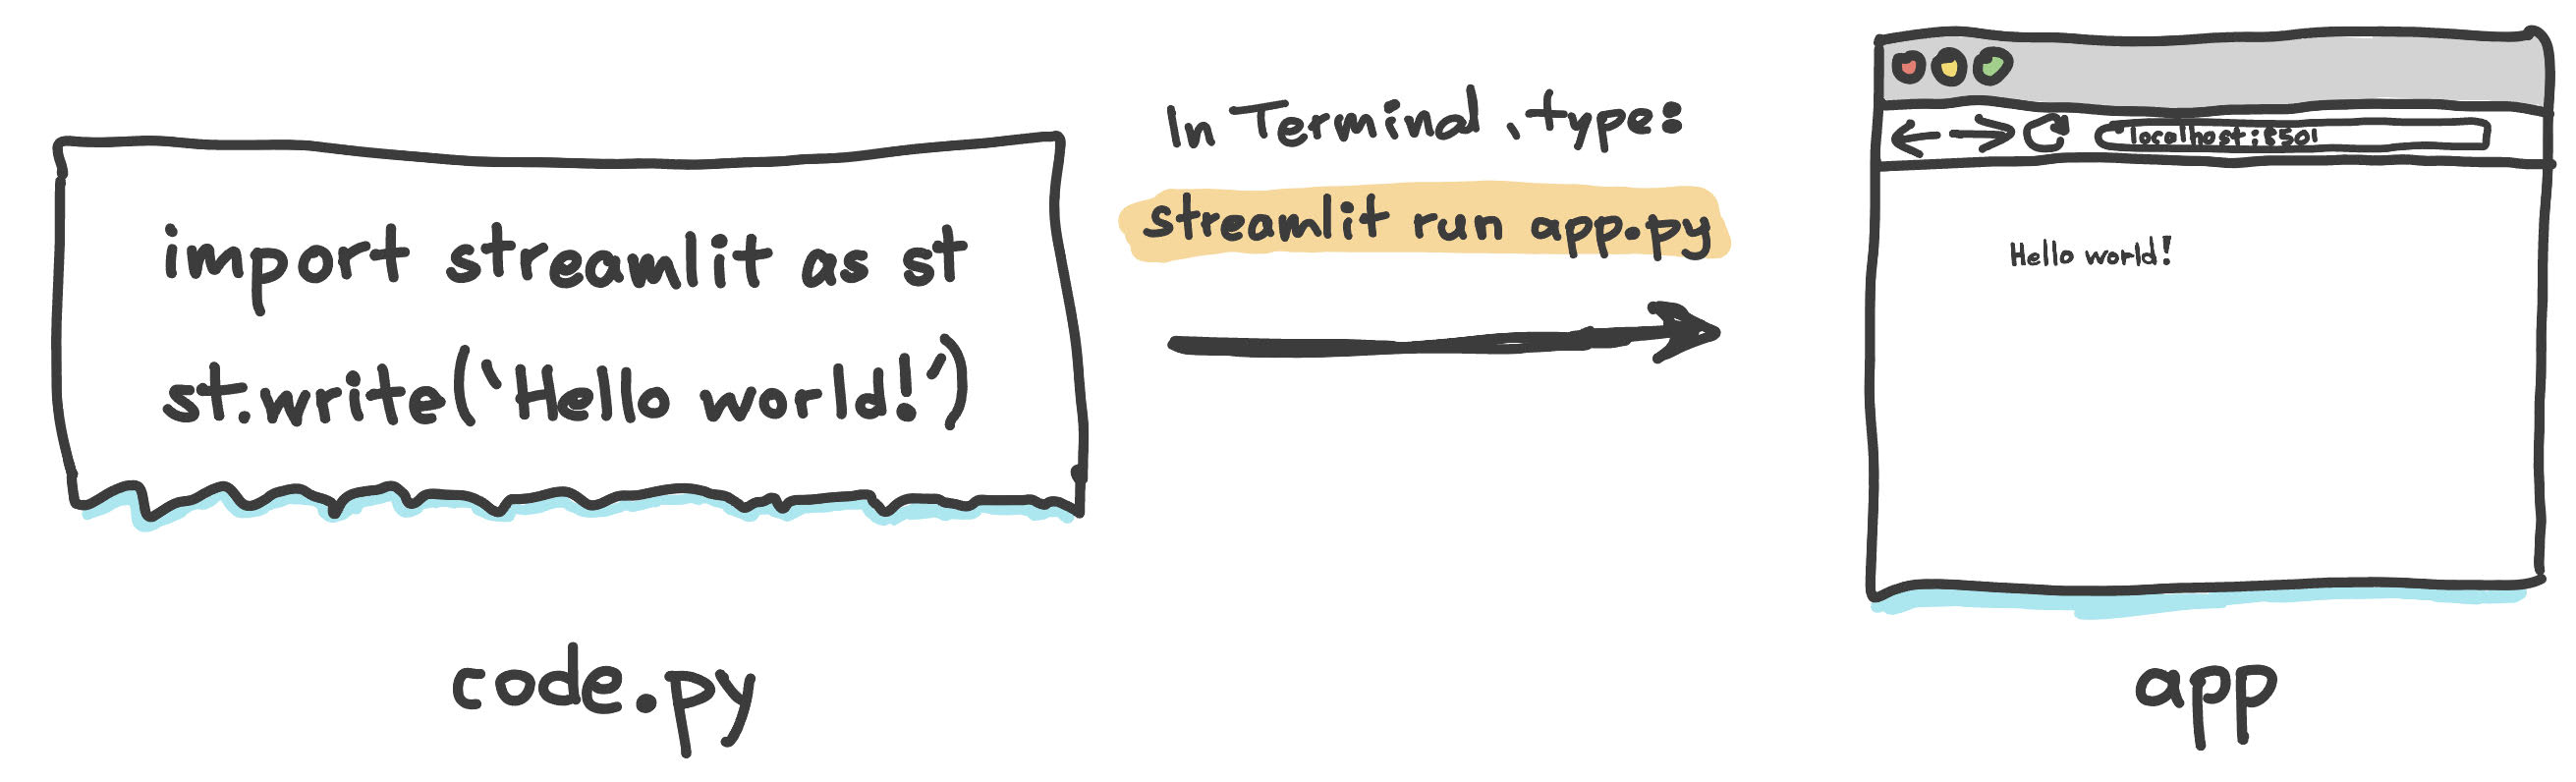 import streamlit as st
st.write('Hello world!')
code.py
In Terminal, type:
streamlit run app.py
localhost:8501
Hello world!
app